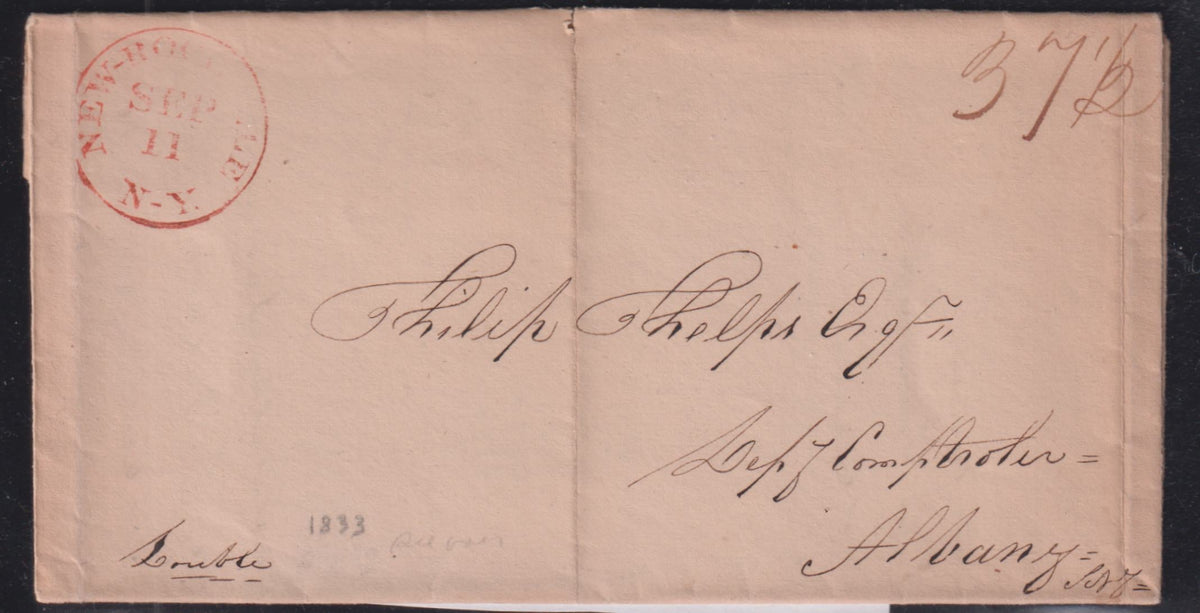 NEW-ROCHELLE
SEP
11
N-Y
37½
Philip Phelps Esqr.,
Depy Comptroler=
Albany=
SNY=
Double
1833